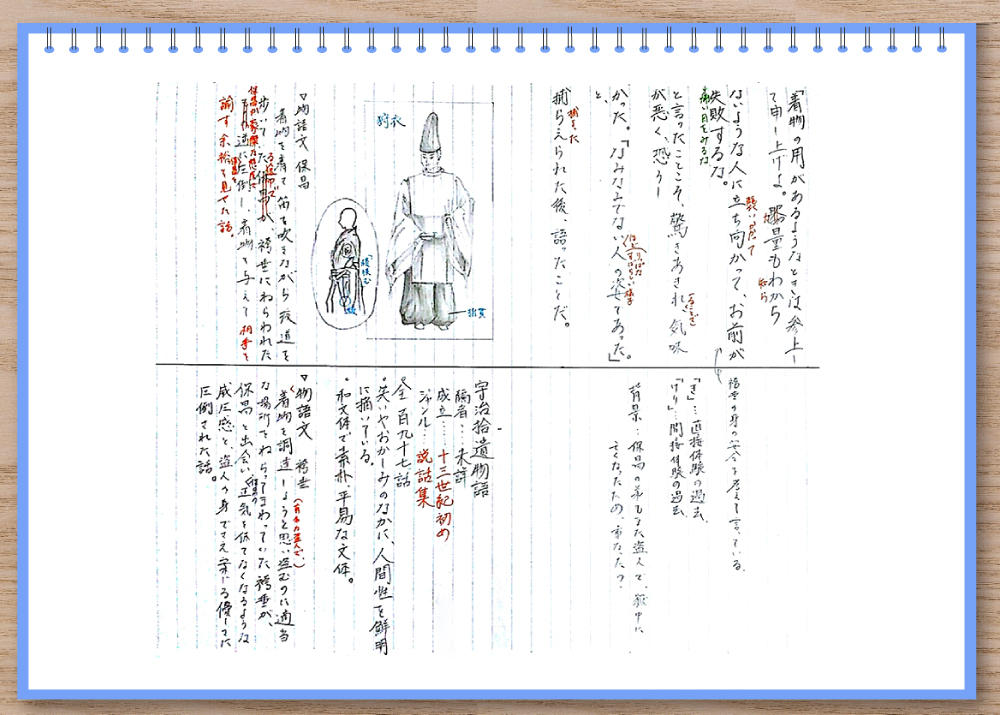 「着物の用があるようなときは参上し
て申し上げよ。器量もわから
ないような人に立ち向かって、お前が
失敗するな。
痛い目をみるな
と言ったことこそ、驚きあきれ、気味
が悪く、恐し
かった。「なみなみでない人の姿であった。」
と、
捕まった
捕らえられた後、語ったことだ。
狩衣
指貫
腰
▽物語文 保昌
着物を着て笛を吹きながら夜道を
歩いていた保昌が、袴垂にねらわれた
逆に圧倒し、着物を与えて相手を
諭す余裕を見せた話。
袴垂の身の安全を考えて言っている。
「き」…直接体験の過去
「けり」…間接体験の過去
背景…保昌の弟もまた盗人で、獄中に
亡くなったため、市なった?
宇治拾遺物語
編者…未詳
成立…十三世紀初め
ジャンル…説話集
全百九十七話
・笑いやおかしみのなかに、人間性を鮮明
に描いている。
・和文体で素朴、平易な文体。
▽物語文 袴垂
着物を調達しようと思い盗むのに適当
な場所をねらってまわっていた袴垂が、
保昌と出会い、正気を保てなくなるような
威圧感と、盗人の身でさえ案じる優しさに
圧倒された話。